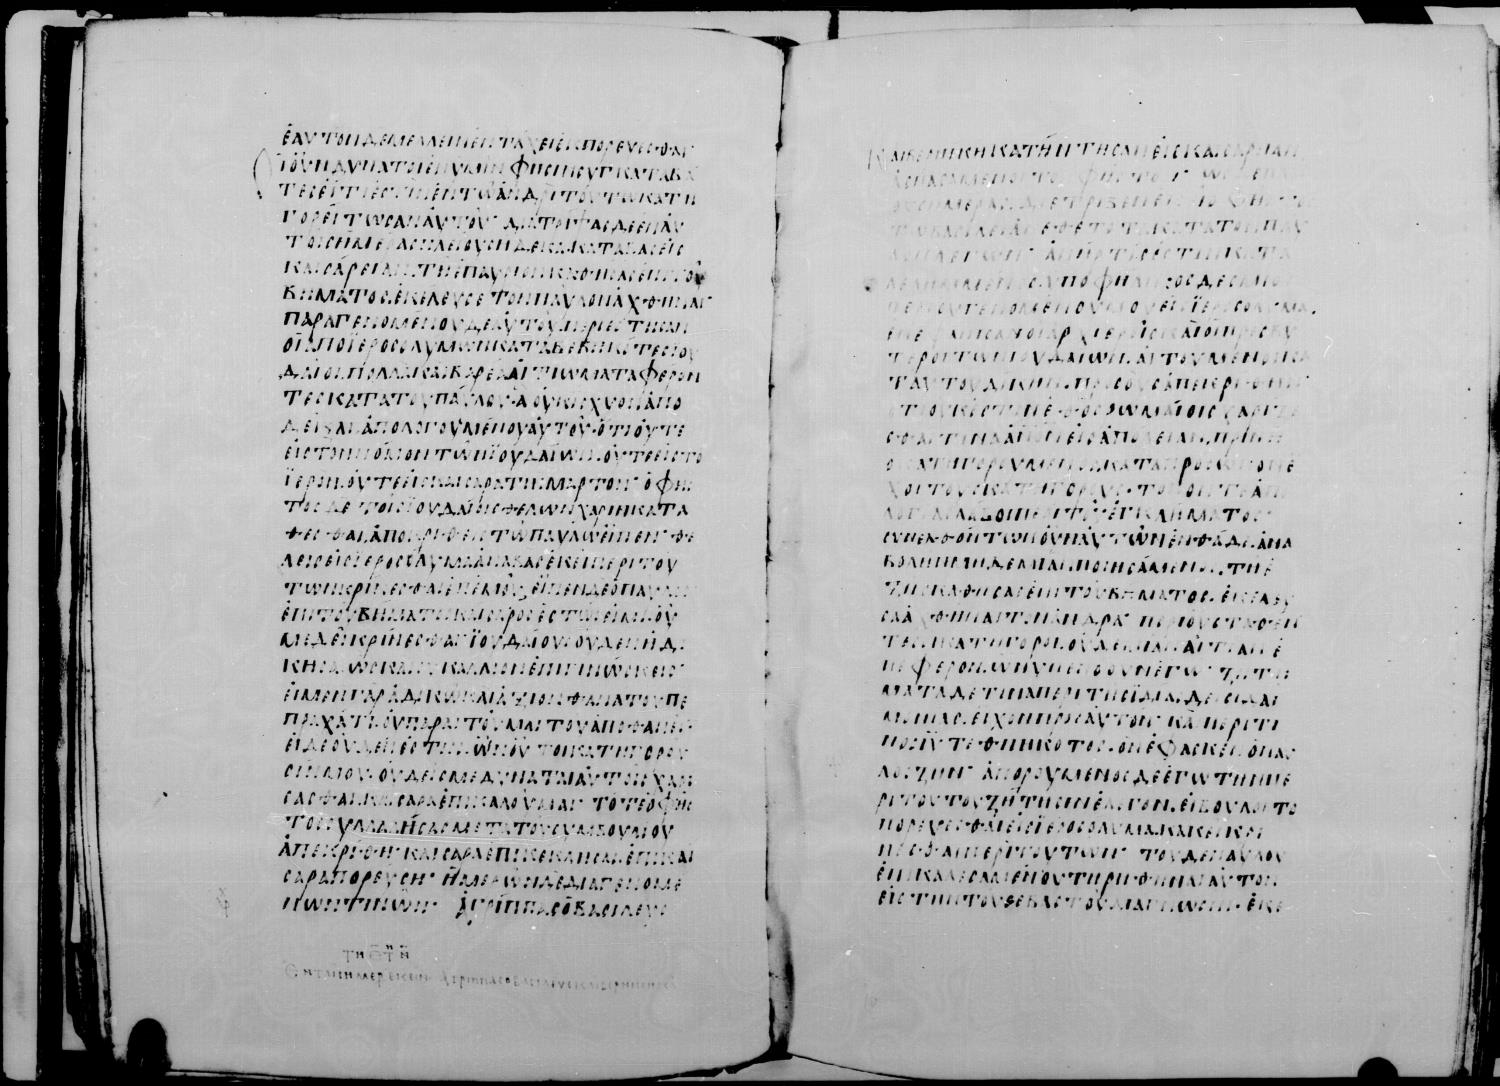 ἑαυτὸν δὲ μέλλειν ἐν τάχει ἐκπορεύεσθαι
Ὁι οὖν δυνατοὶ ἐν ὑμῖν φησιν συγκαταβά
τες εἴ τι ἐστὶν ἐν τῷ ἀνδρὶ τούτω κατη
γορείτωσαν αὐτοῦ· διατρίψας δὲ ἐν αὐ
τοῖς ἡμέρας πλείους ἢ δέκα. καταβὰς εἰς
καισάρειαν. τῇ ἐπαύριον καθίσας ἐπὶ τοῦ
βήματος. ἐκέλευσε τὸν παῦλον ἀχθῆναι
παραγενομένου δὲ αὐτοῦ. περιέστησαν
οἱ ἀπὸ ἱεροσολύμων καταβεβηκότες ἰου
δαῖοι. πολλὰ καὶ βαρέα αἰτιώματα φέρον
τες κατὰ τοῦ παύλου. ἃ οὐκ ἴσχυον ἀπο
δεῖξαι. ἀπολογουμένου αὐτοῦ. ὅτι οὔτε
εἰς τὸν νόμον τῶν ἰουδαίων. οὔτε εἰς τὸ
ἱερὸν. οὔτε εἰς καίσαρά τι ἥμαρτον· ὁ φῆς
τος δὲ τοῖς ἰουδαίοις θέλων χάριν κατα
θέσθαι. ἀποκριθεὶς τῷ παύλω εἶπεν· θέ
λεις εἰς ἱεροσόλυμα ἀναβὰς ἐκεῖ περὶ τού
των κρίνεσθαι ἐπ' ἐμοῦ; εἶπεν δὲ ὁ παῦλος
ἐπὶ τοῦ βήματος καίσαρος ἑστώς εἰμι. οὗ
με δεῖ κρίνεσθαι· ἰουδαίους οὐδὲν ἠδί
κησα. ὡς καὶ σὺ κάλλιον ἐπιγινώσκεις·
εἰ μὲν γὰρ ἀδικῶ καὶ ἄξιον θανάτου πέ
πραχά τι. οὐ παραιτοῦμαι τὸ ἀποθανεῖν·
εἰ δὲ οὐδέν ἐστιν. ὧν οὗτοι κατηγοροῦ
σίν μου. οὐδείς με δύναται αὐτοῖς χαρί
σασθαι. καίσαρα ἐπικαλοῦμαι· τότε ὁ φῆς
τος συλλαλήσας μετὰ τοῦ συμβουλίου
ἀπεκρίθη· καίσαρα ἐπικέκλησαι. ἐπὶ καί
σαρα πορεύση· ἡμερῶν δὲ διαγενομέ
νων τινῶν· ἀγρίππας ὁ βασιλεὺς
καὶ βερνίκη κατήντησαν εἰς καισάρειαν
ἀσπασάμενοι τὸν φῆστον· ὡς δὲ πλεί
ους ἡμέρας διέτριβεν ἐκεῖ. ὁ φῆστος
τῷ βασιλεῖ ἀνέθετο τὰ κατὰ τὸν παῦ
λον λέγων· ἀνήρ τις ἐστὶν κατα
λελιμμένος ὑπὸ φήλικος δέσμιος
περὶ οὗ γενομένου μου εἰς ἱεροσόλυμα.
ἐνεφάνισαν οἱ ἀρχιερεῖς καὶ οἱ πρεσβύ
τεροι τῶν ἰουδαίων. αἰτούμενοι κα
τ' αὐτοῦ δίκην. πρὸς οὓς ἀπεκρίθην·
ὅτι οὐκ ἔστιν ἔθος ῥωμαίοις χαρίζε
σθαί τινα ἄνον εἰς ἀπώλειαν. πρὶν ἢ
ὁ κατηγορούμενος κατὰ πρόσωπον ἔ
χοι τοὺς κατηγόρους. τόπον τε ἀπο
λογίας λάβοι περὶ τοῦ ἐγκλήματος·
συνελθόντων οὖν αὐτῶν ἐνθάδε. ἀνα
βολὴν μηδεμίαν ποιησάμενος. τῇ ἑ
ξῆς καθίσας ἐπὶ τοῦ βήματος. ἐκέλευ
σα ἀχθῆναι τὸν ἄνδρα· περὶ οὗ σταθέν
τες οἱ κατήγοροι. οὐδεμίαν αἰτίαν ἐ
πέφερον. ὧν ὑπενόουν ἐγώ· ζητή
ματα δέ τινα περὶ τῆς ἰδίας δεισιδαι
μονίας. εἶχον πρὸς αὐτὸν· καὶ περί τι
νος ἰῦ τεθνηκότος. ὃν ἔφασκεν ὁ παῦ
λος ζῆν· ἀπορούμενος δὲ ἐγὼ τὴν πε
ρὶ τούτου ζήτησιν. ἔλεγον. εἰ βούλοιτο
πορεύεσθαι εἰς ἱεροσόλυμα. κἀκεῖ κρί
νεσθαι περὶ τούτων· τοῦ δὲ παύλου
ἐπικαλεσαμένου τηρηθῆναι αὐτὸν
εἰς τὴν τοῦ σεβαστοῦ διάγνωσιν. ἐκέ